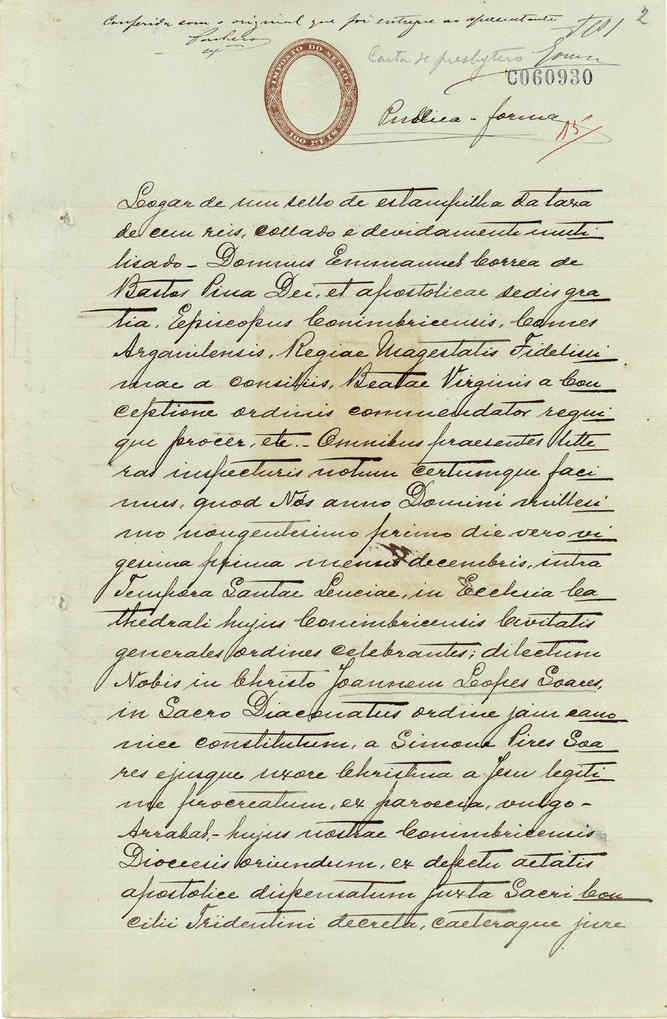 Conferida com o original que foi entregue ao apresentante
2
Carta de presbytero
C060930
IMPOSTO DO SELLO
100 REIS
Publica-forma
15
Logar de um sello de estampilha da taxa
de cem reis, collado e devidamente inuti
lisado - Domnus Emmanuel Correa de
Bastos Pina Dei, et apostolicae sedis gra
tia, Episcopus Conimbricensis, Comes
Arganilensis, Regiae Magestatis Fidelissi
mae a consiliis, Beatae Virginis a Con
ceptione ordinis commendator regni
que procer, etc. - Omnibus praesentes litte
ras inspecturis notum certumque faci
mus, quod Nós anno Domini millesi
mo nongentesimo primo die vero vi
gesima prima mensis decembris, intra
Tempora Santae Luciae, in Ecclesia Ca
thedrali hujus Conimbricensis Civitatis
generales ordines celebrantes; dilectum
Nobis in Christo Joannem Lopes Soares,
in Sacro Diaconatus ordine jam cano
nice constitutum, a Simone Pires Soa
res ejusque uxore Christina a Jesu legiti
me procreatum, ex paroecia, vulgo -
Arrabal, - hujus nostrae Conimbricensis
Diocesis oriundum, ex defectu aetatis
apostolice dispensatum juxta Sacri Con
cilii Tridentini decreta, caeteraque jure